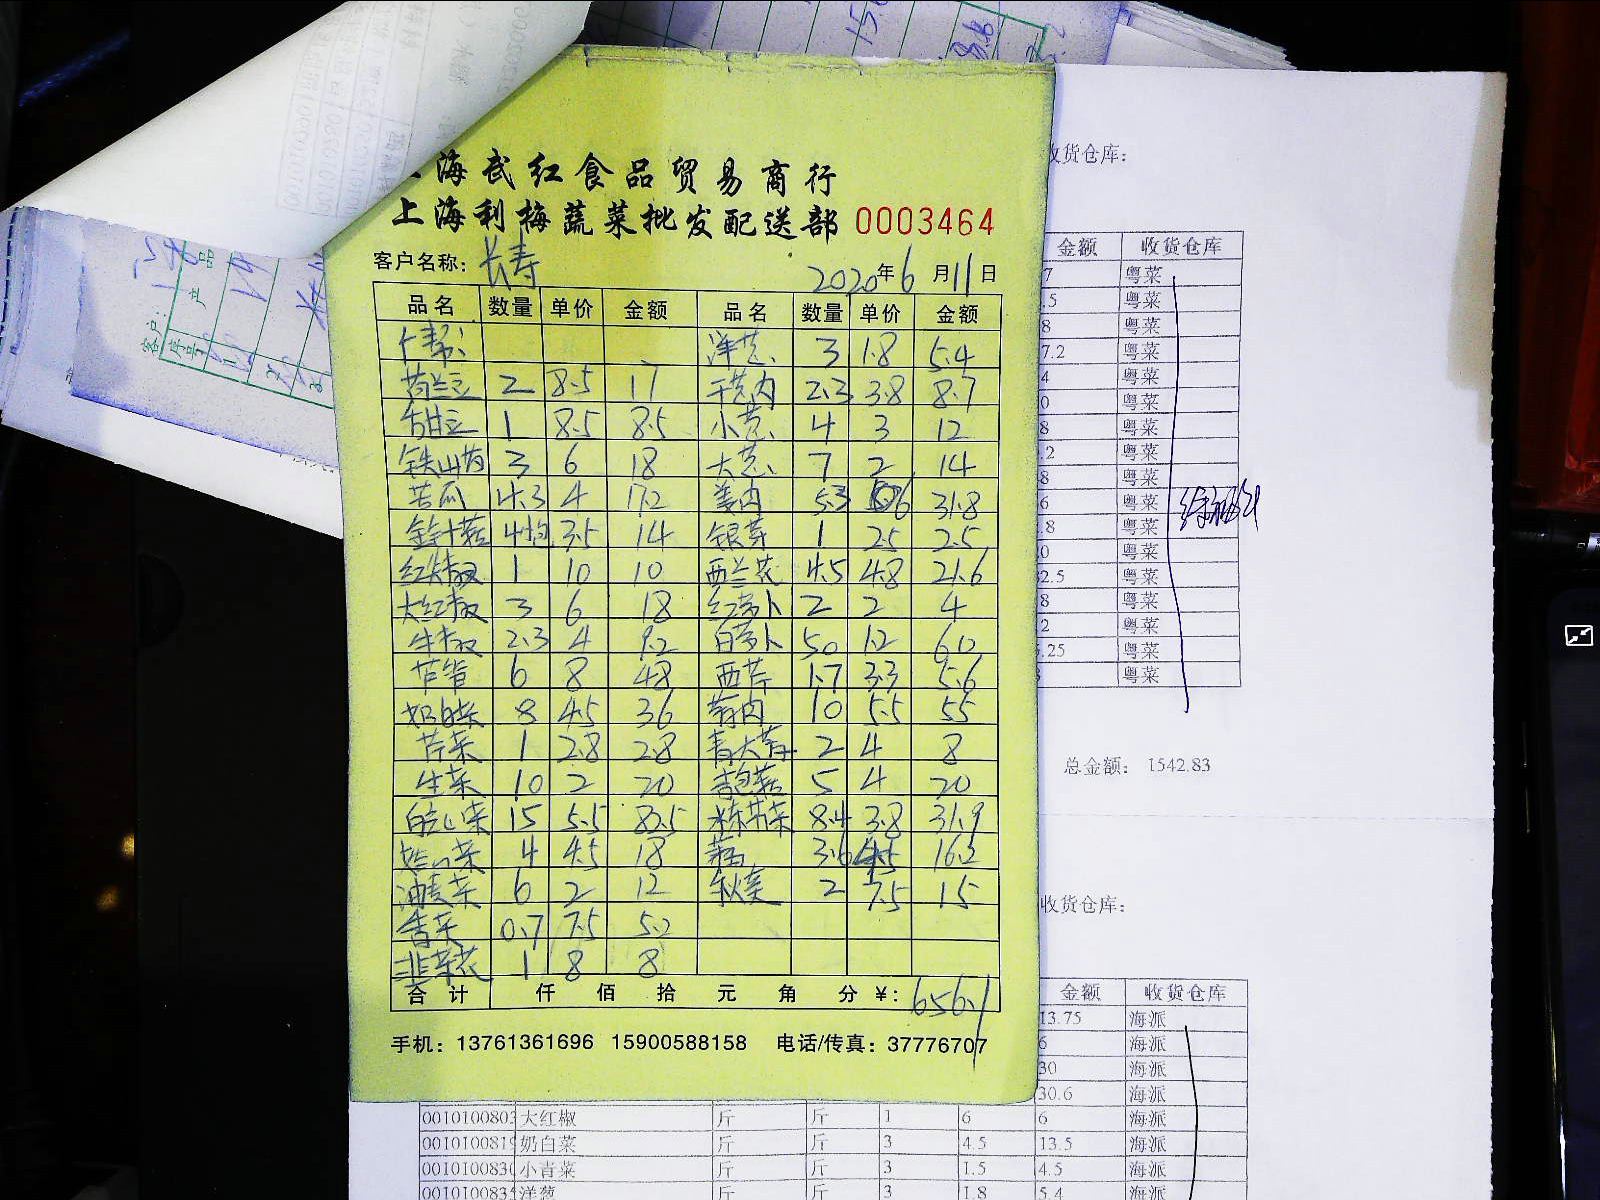 海武红食品贸易商行
上海利梅蔬菜批发配送部 0003464
客户名称: 长寿 2020年6月11日
品名 数量 单价 金额 品名 数量 单价 金额
洋葱 3 1.8 5.4
荷兰豆 2 8.5 17 干葱肉 2.3 3.8 8.7
甜豆 1 8.5 8.5 小葱 4 3 12
铁山药 3 6 18 大葱 7 2 14
苦瓜 4.3 4 17.2 姜肉 5.3 6 31.8
金针菇 4包 3.5 14 银芽 1 2.5 2.5
红尖椒 1 10 10 西兰花 4.5 4.8 21.6
大红椒 3 6 18 红萝卜 2 2 4
牛椒 2.3 4 9.2 白萝卜 50 1.2 60
芦笋 6 8 48 西芹 1.7 3.3 5.6
奶白菜 8 4.5 36 莴肉 10 5.5 55
芹菜 1 2.8 2.8 青大蒜 2 4 8
生菜 10 2 20 包菇 5 4 20
白心菜 15 5.5 82.5 菜 8.4 3.8 31.9
菜 4 4.5 18 3.6 4.5 16.2
油麦菜 6 2 12 秋葵 2 7.5 15
香菜 0.7 7.5 5.2
韭菜花 1 8 8
合计 仟 佰 拾 元 角 分 ¥: 656.1
手机: 13761361696 15900588158 电话/传真: 37776707
收货仓库:
金额 收货仓库
7 粤菜
.5 粤菜
8 粤菜
7.2 粤菜
4 粤菜
0 粤菜
8 粤菜
.2 粤菜
8 粤菜
6 粤菜
.8 粤菜
0 粤菜
2.5 粤菜
8 粤菜
2 粤菜
.25 粤菜
粤菜
总金额: 1542.83
收货仓库:
金额 收货仓库
13.75 海派
6 海派
30 海派
30.6 海派
001010080 大红椒 斤 斤 1 6 6 海派
001010081 奶白菜 斤 斤 3 4.5 13.5 海派
001010083 小青菜 斤 斤 3 1.5 4.5 海派
001010083 洋葱 斤 斤 3 1.8 5.4 海派